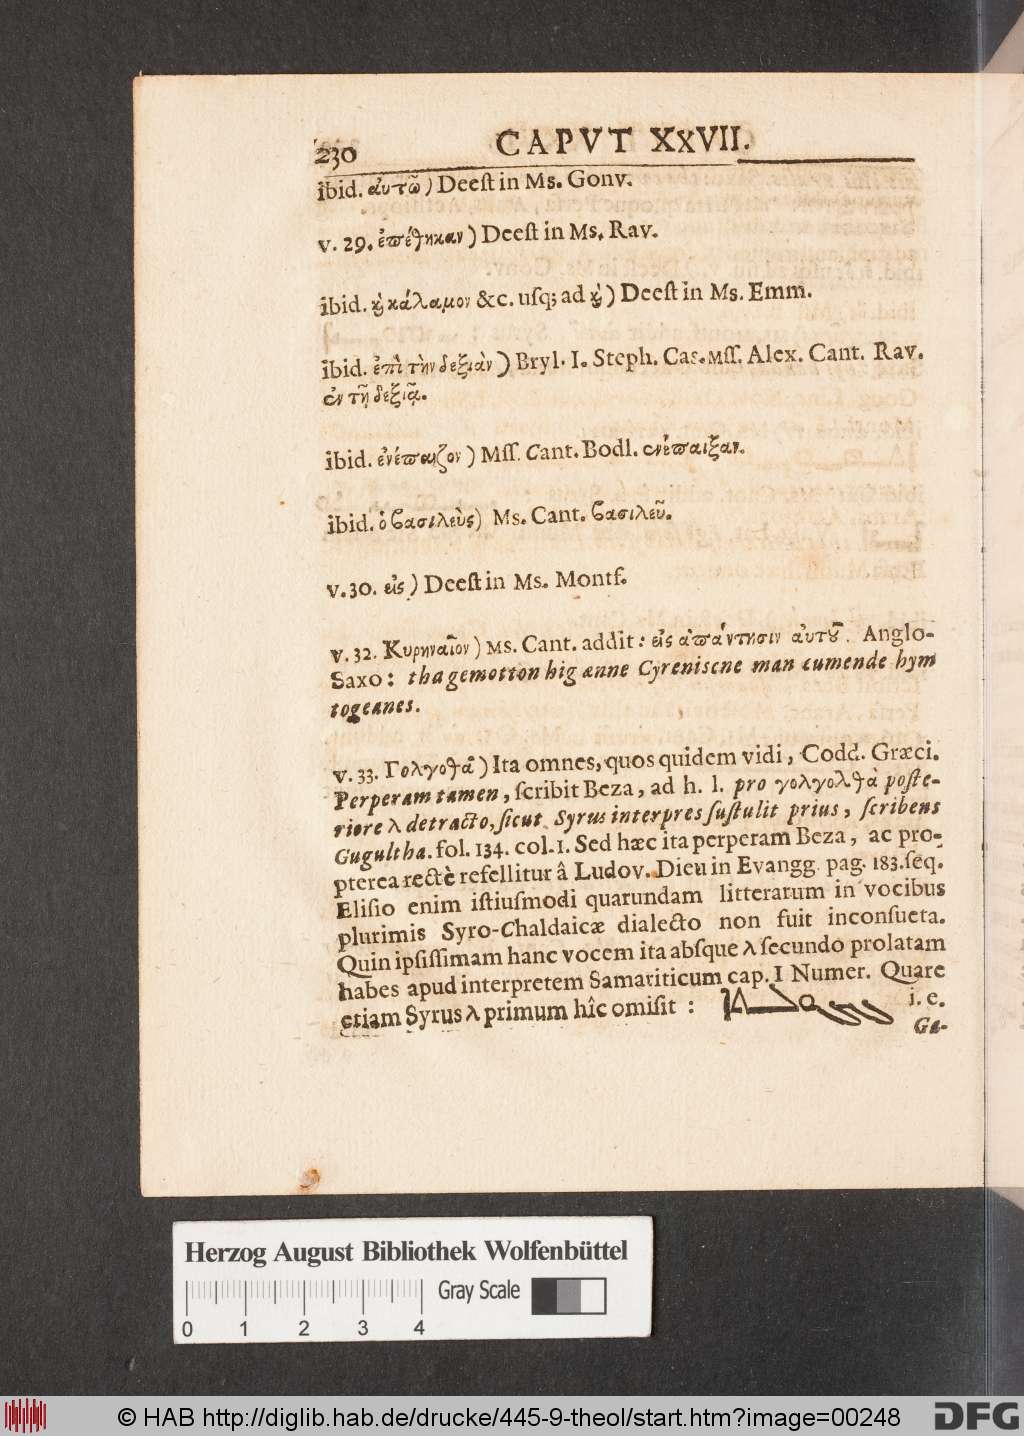 230 CAPVT XXVII.
ibid. αὐτῶ) Deeſt in Ms. Gonv.
v. 29. ἐπέθηκαν) Deeſt in Ms. Rav.
ibid. ϗ κάλαμον &c. uſq; ad ϗ) Deeſt in Ms. Emm.
ibid. ἐπὶ τὴν δεξιὰν) Bryl. I. Steph. Cas. Mſſ. Alex. Cant. Rav.
ἐν τῇ δεξιᾷ.
ibid. ἐνέπαιζον) Mſſ. Cant. Bodl. ἐνέπαιξαν.
ibid. ὁ βασιλεὺς) Ms. Cant. βασιλεῦ.
v. 30. εἰς) Deeſt in Ms. Montf.
v. 32. Κυρηναῖον) Ms. Cant. addit: εἰς ἀπάντησιν αὐτȣ͂. Anglo-
Saxo: tha gemotton hig ænne Cyreniscne man cumende hym
togeanes.
v. 33. Γολγοθᾶ) Ita omnes, quos quidem vidi, Codd. Græci.
Perperam tamen, ſcribit Beza, ad h. l. pro γολγολθὰ poſte-
riore λ detracto, ſicut Syrus interpres ſuſtulit prius, ſcribens
Gugultha. fol. 134. col. 1. Sed hæc ita perperam Beza, ac pro-
pterea rectè refellitur â Ludov. Dieu in Evangg. pag. 183. ſeq.
Eliſio enim iſtiuſmodi quarundam litterarum in vocibus
plurimis Syro-Chaldaicæ dialecto non fuit inconſueta.
Quin ipſiſſimam hanc vocem ita abſque λ ſecundo prolatam
habes apud interpretem Samariticum cap. I Numer. Quare
etiam Syrus λ primum hîc omiſit : i. e.
Ga-
Herzog August Bibliothek Wolfenbüttel
Gray Scale
0 1 2 3 4
© HAB http://diglib.hab.de/drucke/445-9-theol/start.htm?image=00248 DFG